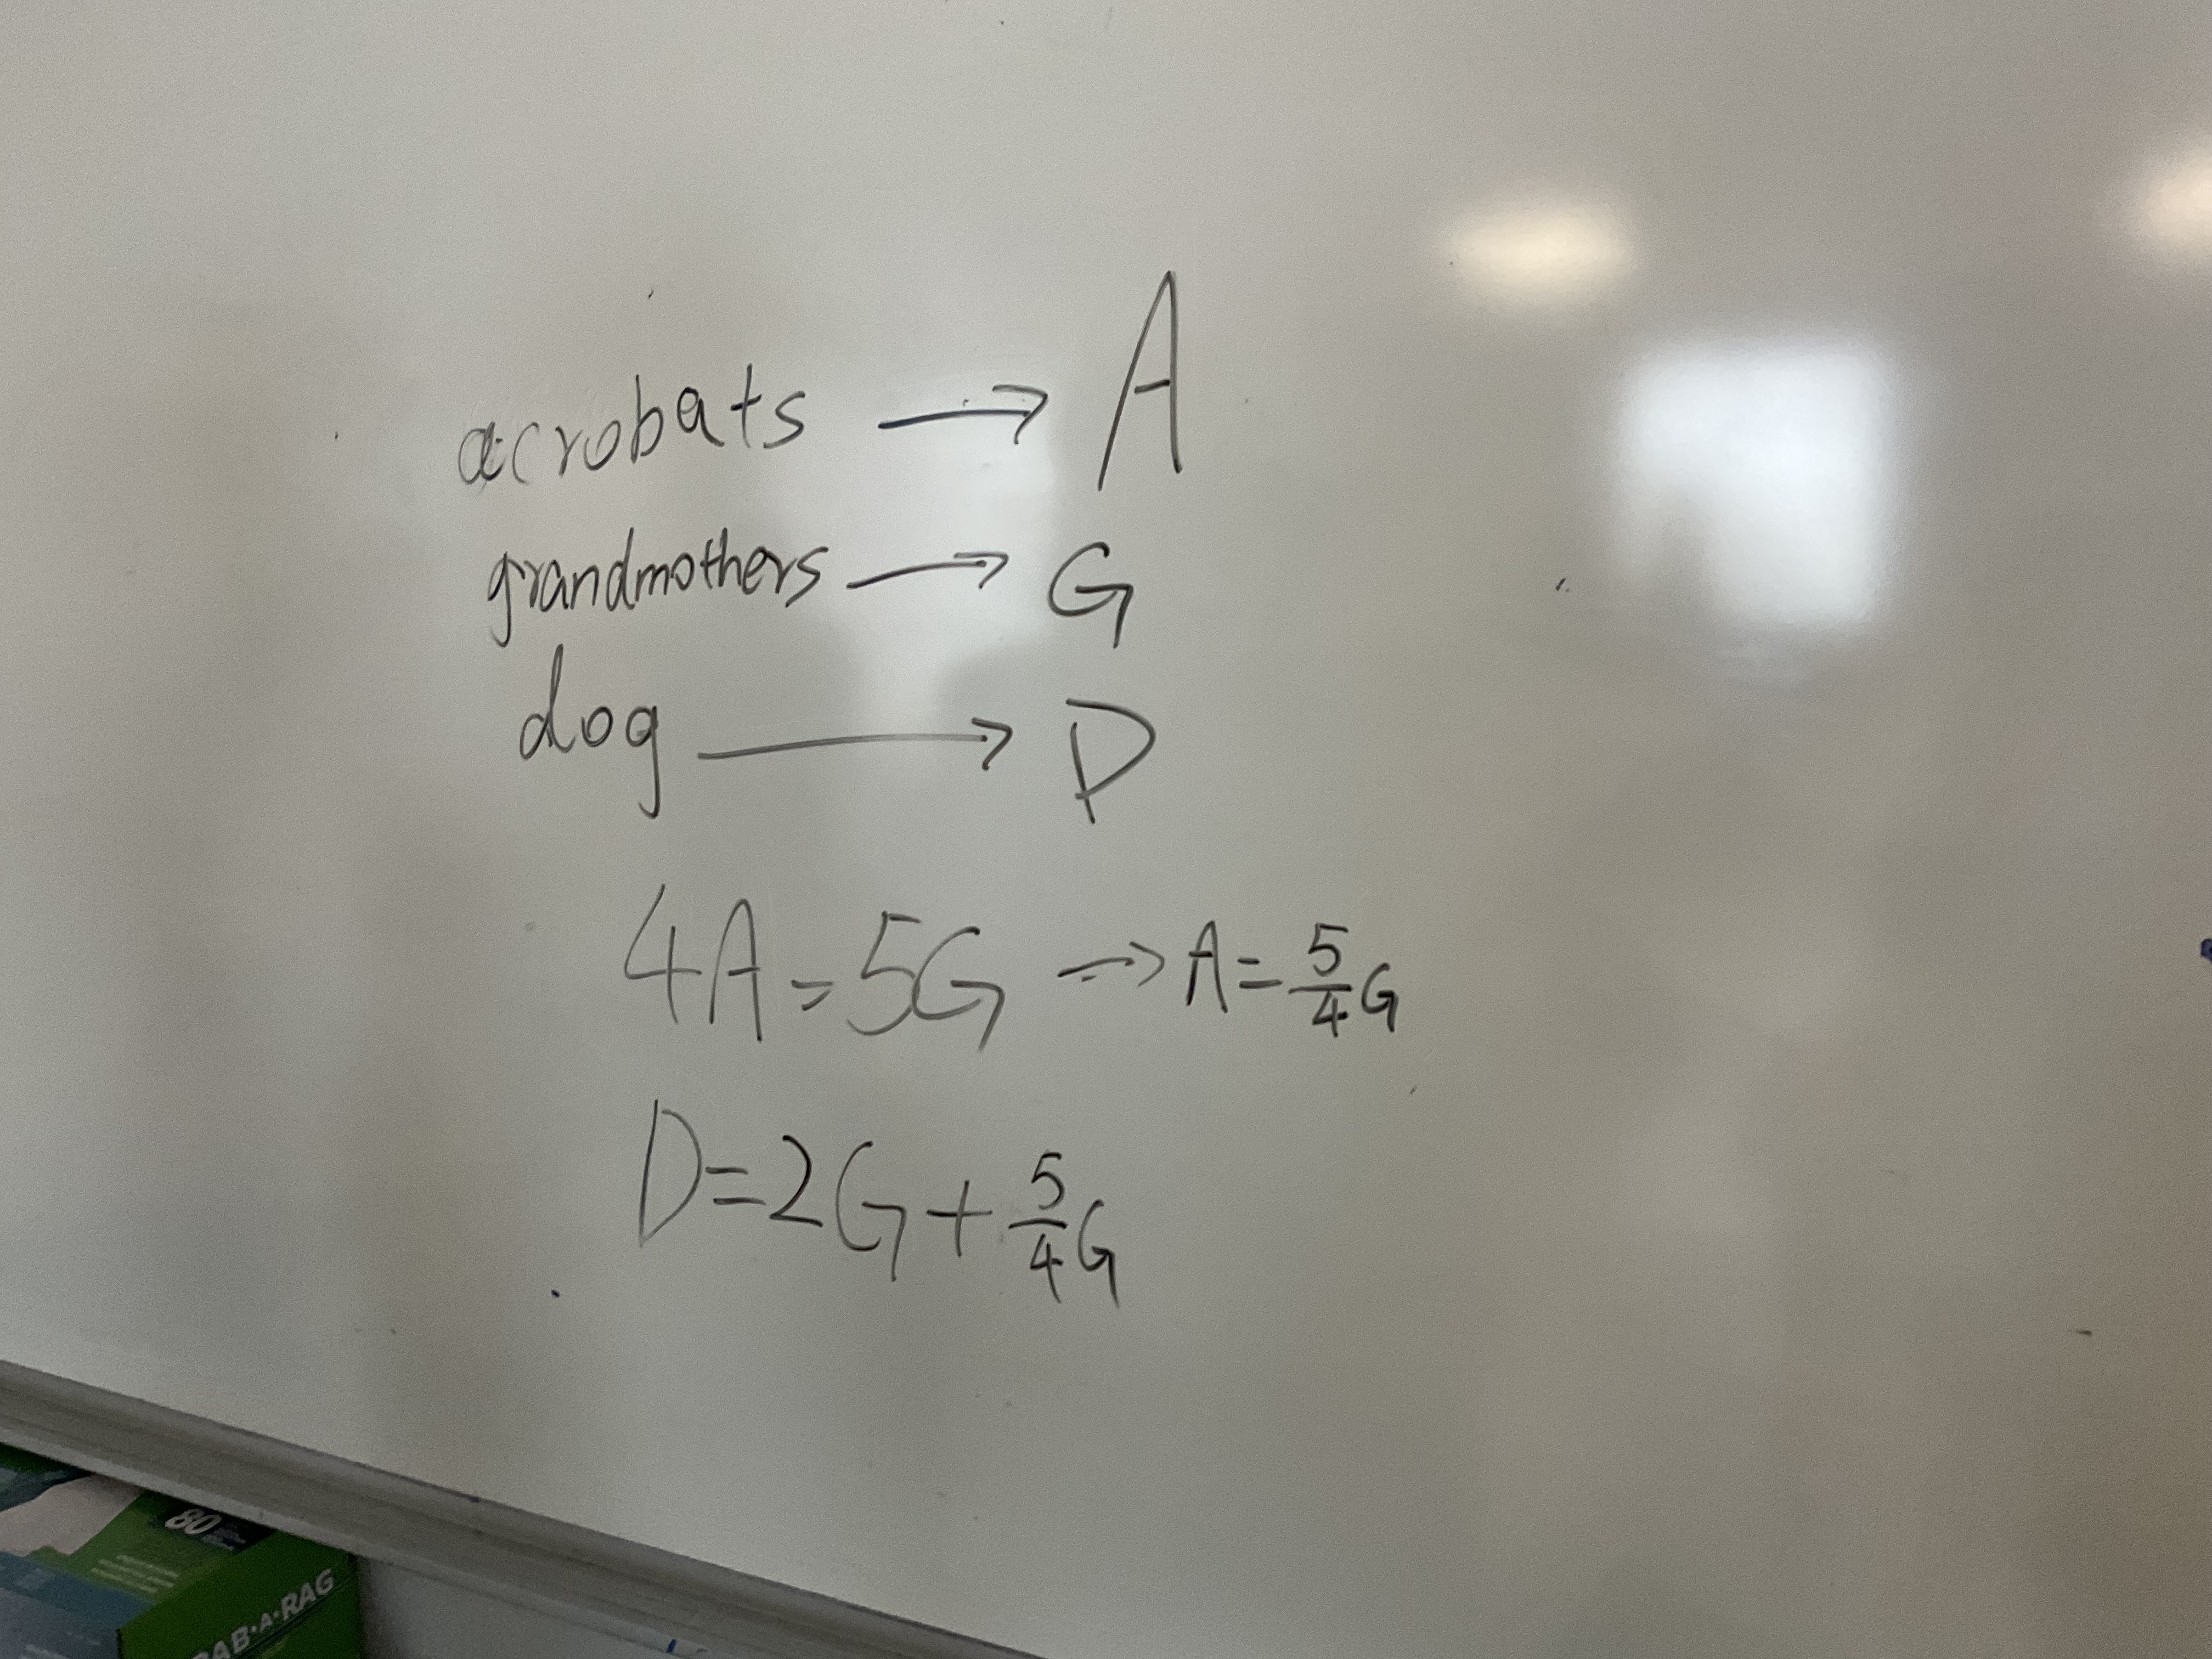 acrobats → A
grandmothers → G
dog → D
4A = 5G → A = 5/4 G
D = 2G + 5/4 G
80
AB·A·RAG